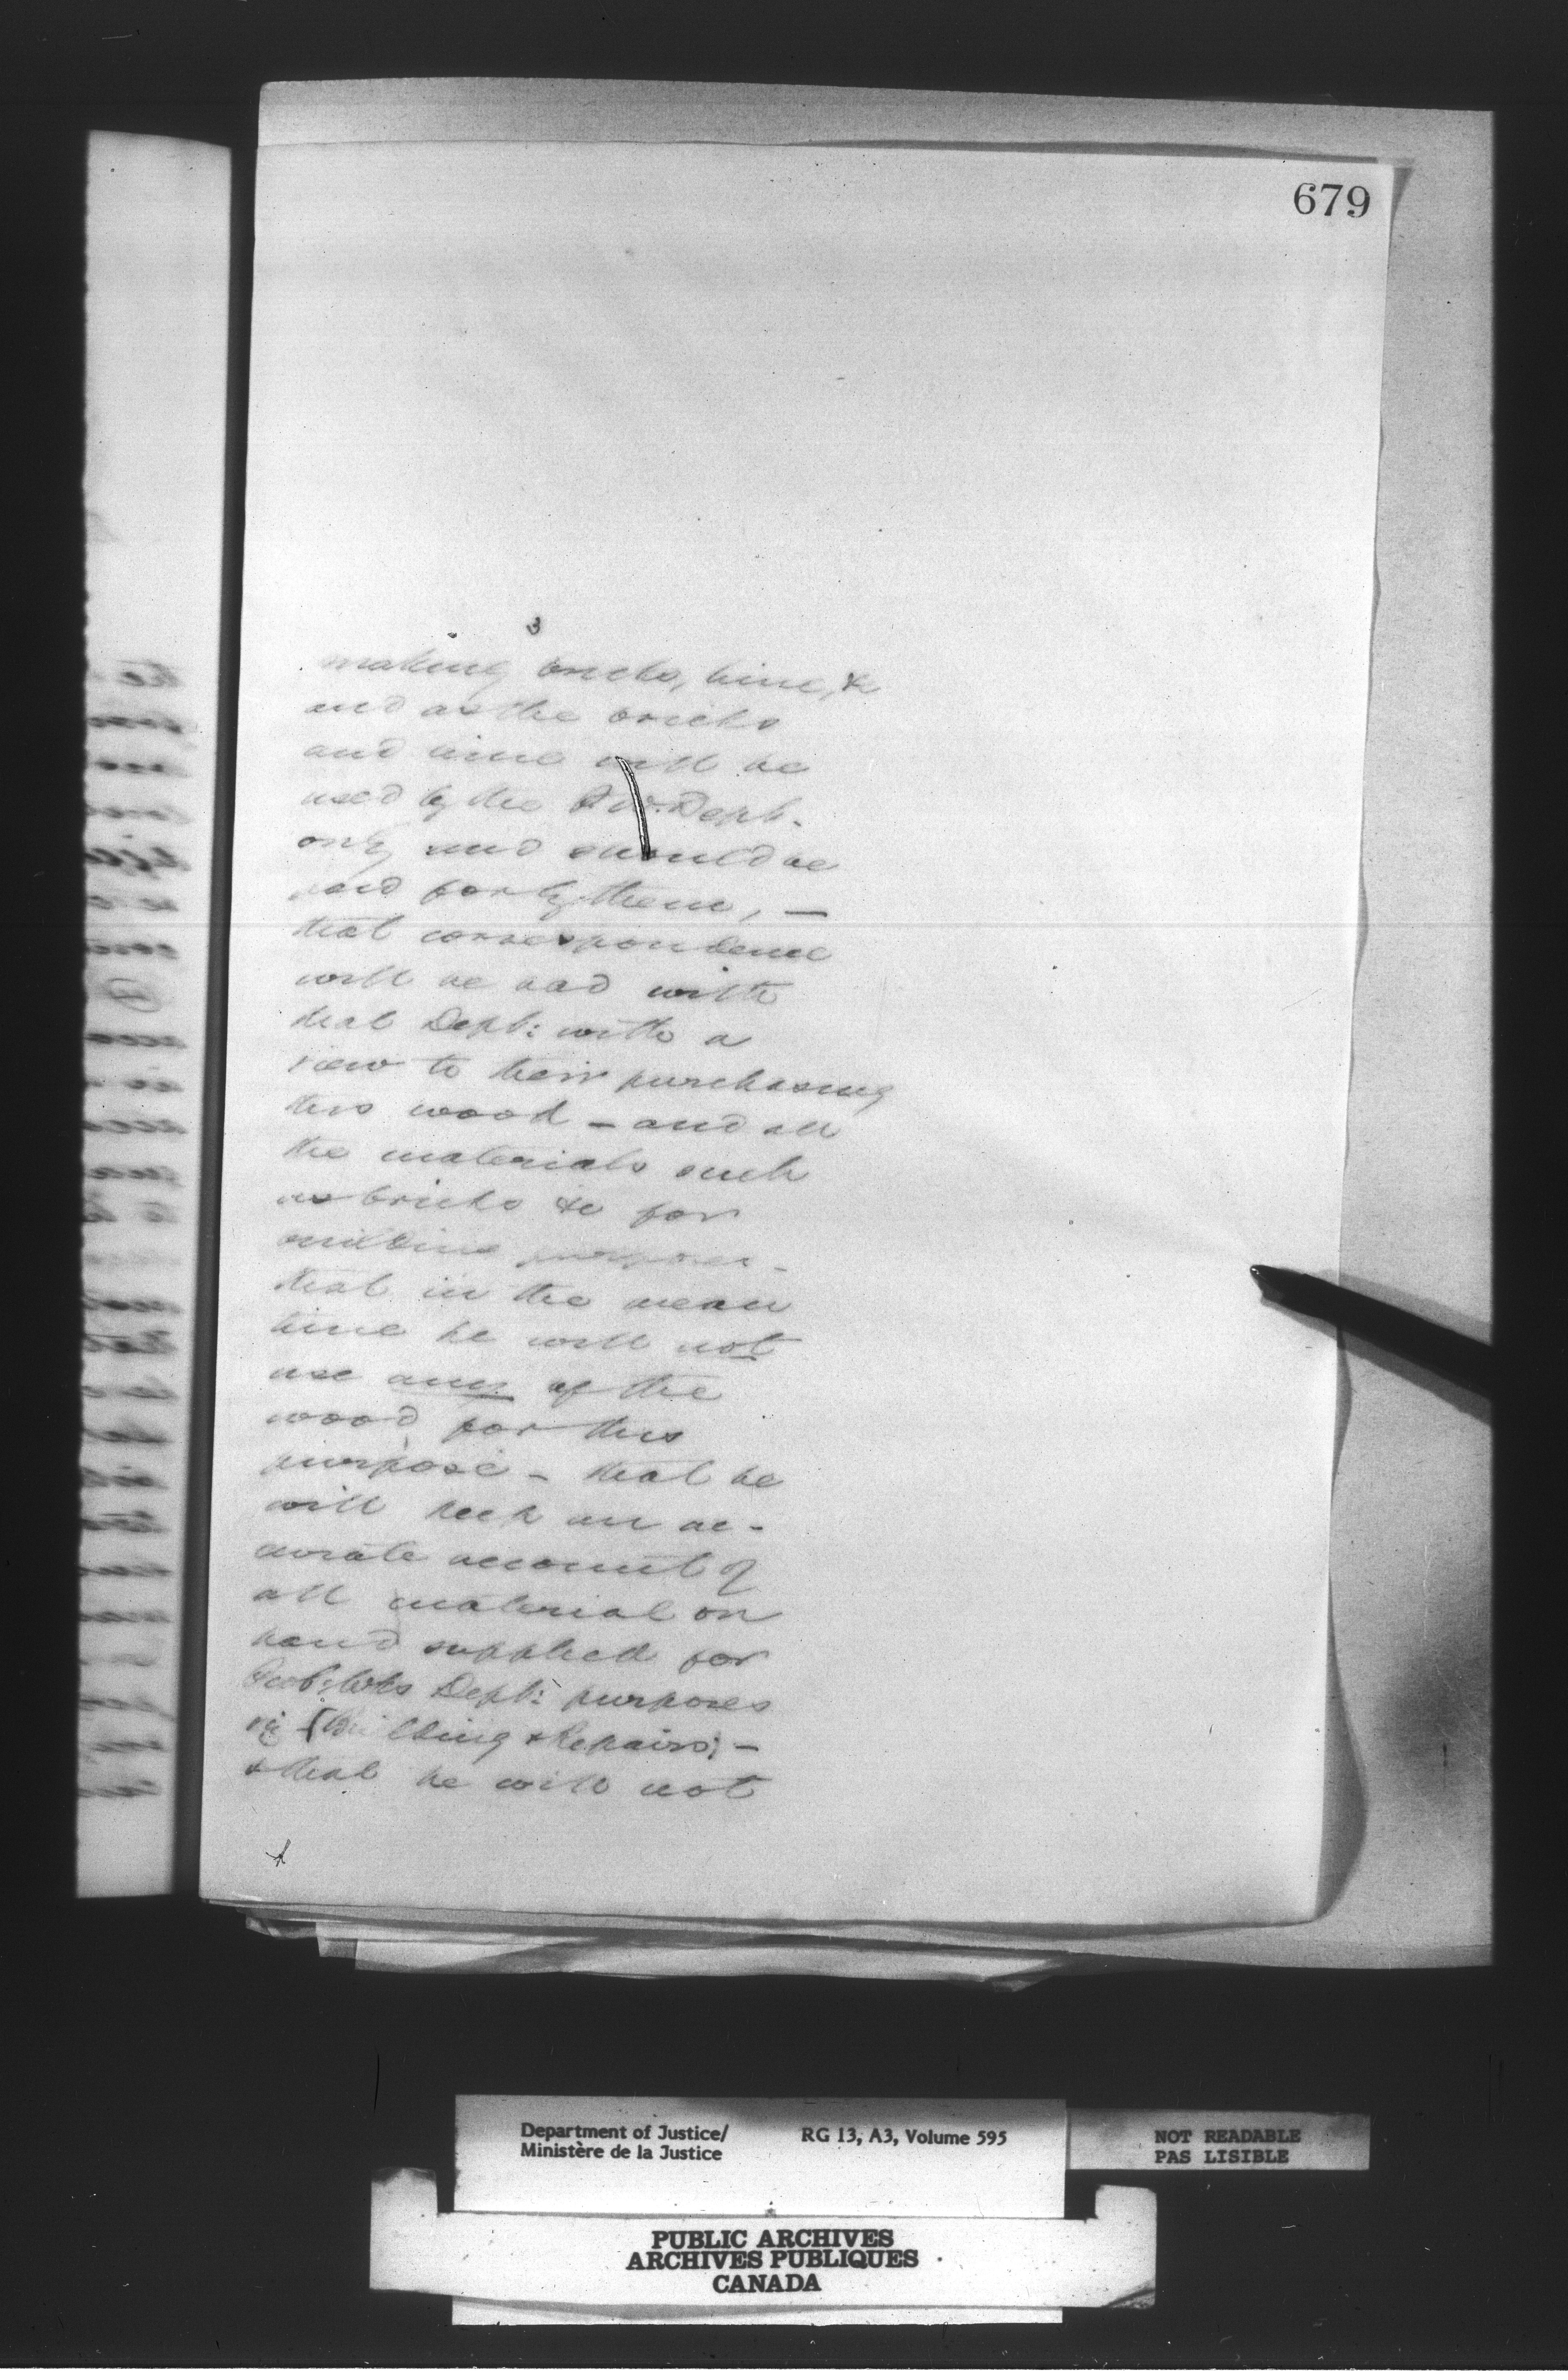 679
3
making bricks, lime, &c
and as the bricks
and lime will be
used by the P. W. Dept.
only and should be
paid for by them, —
that correspondence
will be had with
that Dept: with a
view to their purchasing
this wood — and all
the materials such
as bricks &c for
building purposes —
that in the mean
time he will not
use any of the
wood for this
purpose — that he
will keep an ac-
curate account of
all material on
hand supplied for
Pub: Wks Dept: purposes
viz Building & Repairs; —
& that he will not
Department of Justice/
Ministère de la Justice
RG 13, A3, Volume 595
NOT READABLE
PAS LISIBLE
PUBLIC ARCHIVES
ARCHIVES PUBLIQUES
CANADA